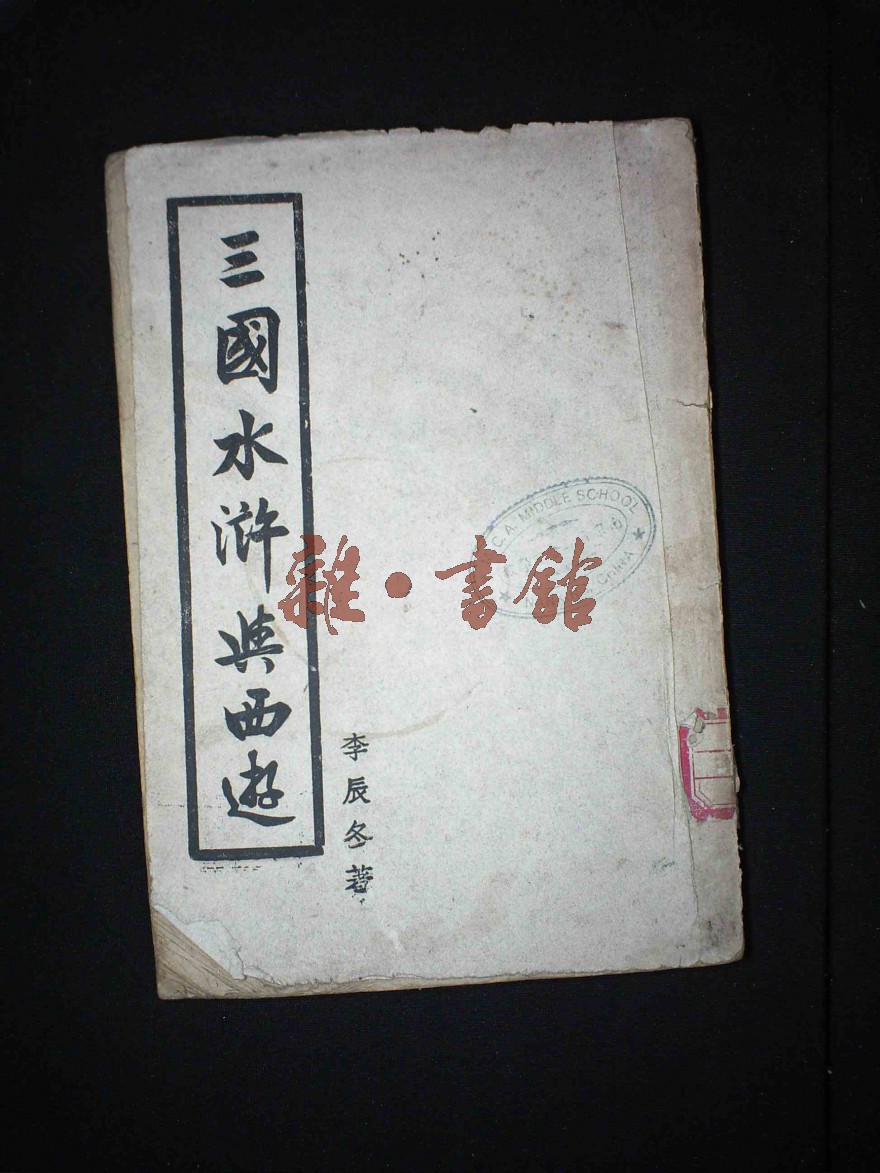 三國水滸與西遊
李辰冬著
C. A. MIDDLE SCHOOL
CHINA
雜·書館